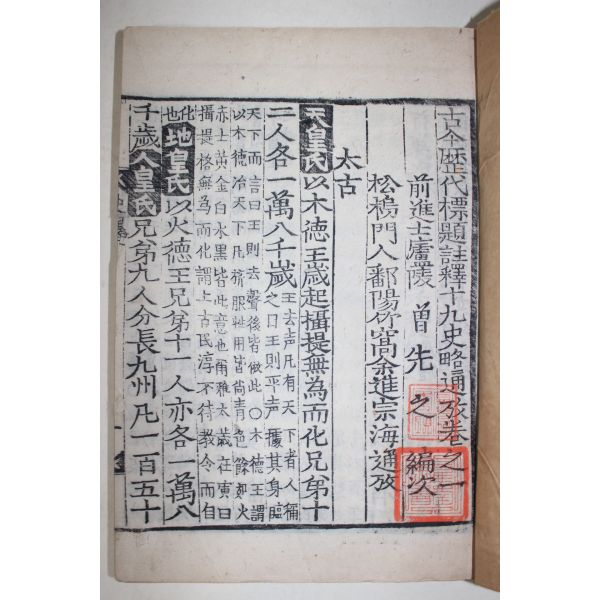 古今歷代標題註釋十九史略通攷卷之一
前進士廬陵 曽 先 之 編次
松塢門人鄱陽竹窩余進宗海通攷
太古
天皇氏以木德王歲起攝提無為而化兄弟十
二人各一萬八千歲王去声凡有天下者人稱之曰王則平声據其身臨
天下而言曰王則去聲後皆倣此〇木德王謂以木德治天下凡
服牲用皆尚青色餘火
亦土黃金白水黑皆此意也爾雅太歲在寅曰攝提格無為而化謂上古民淳不待敎令而自
化也地皇氏以火德王兄弟十一人亦各一萬八
千歲人皇氏兄弟九人分長九州凡一百五十